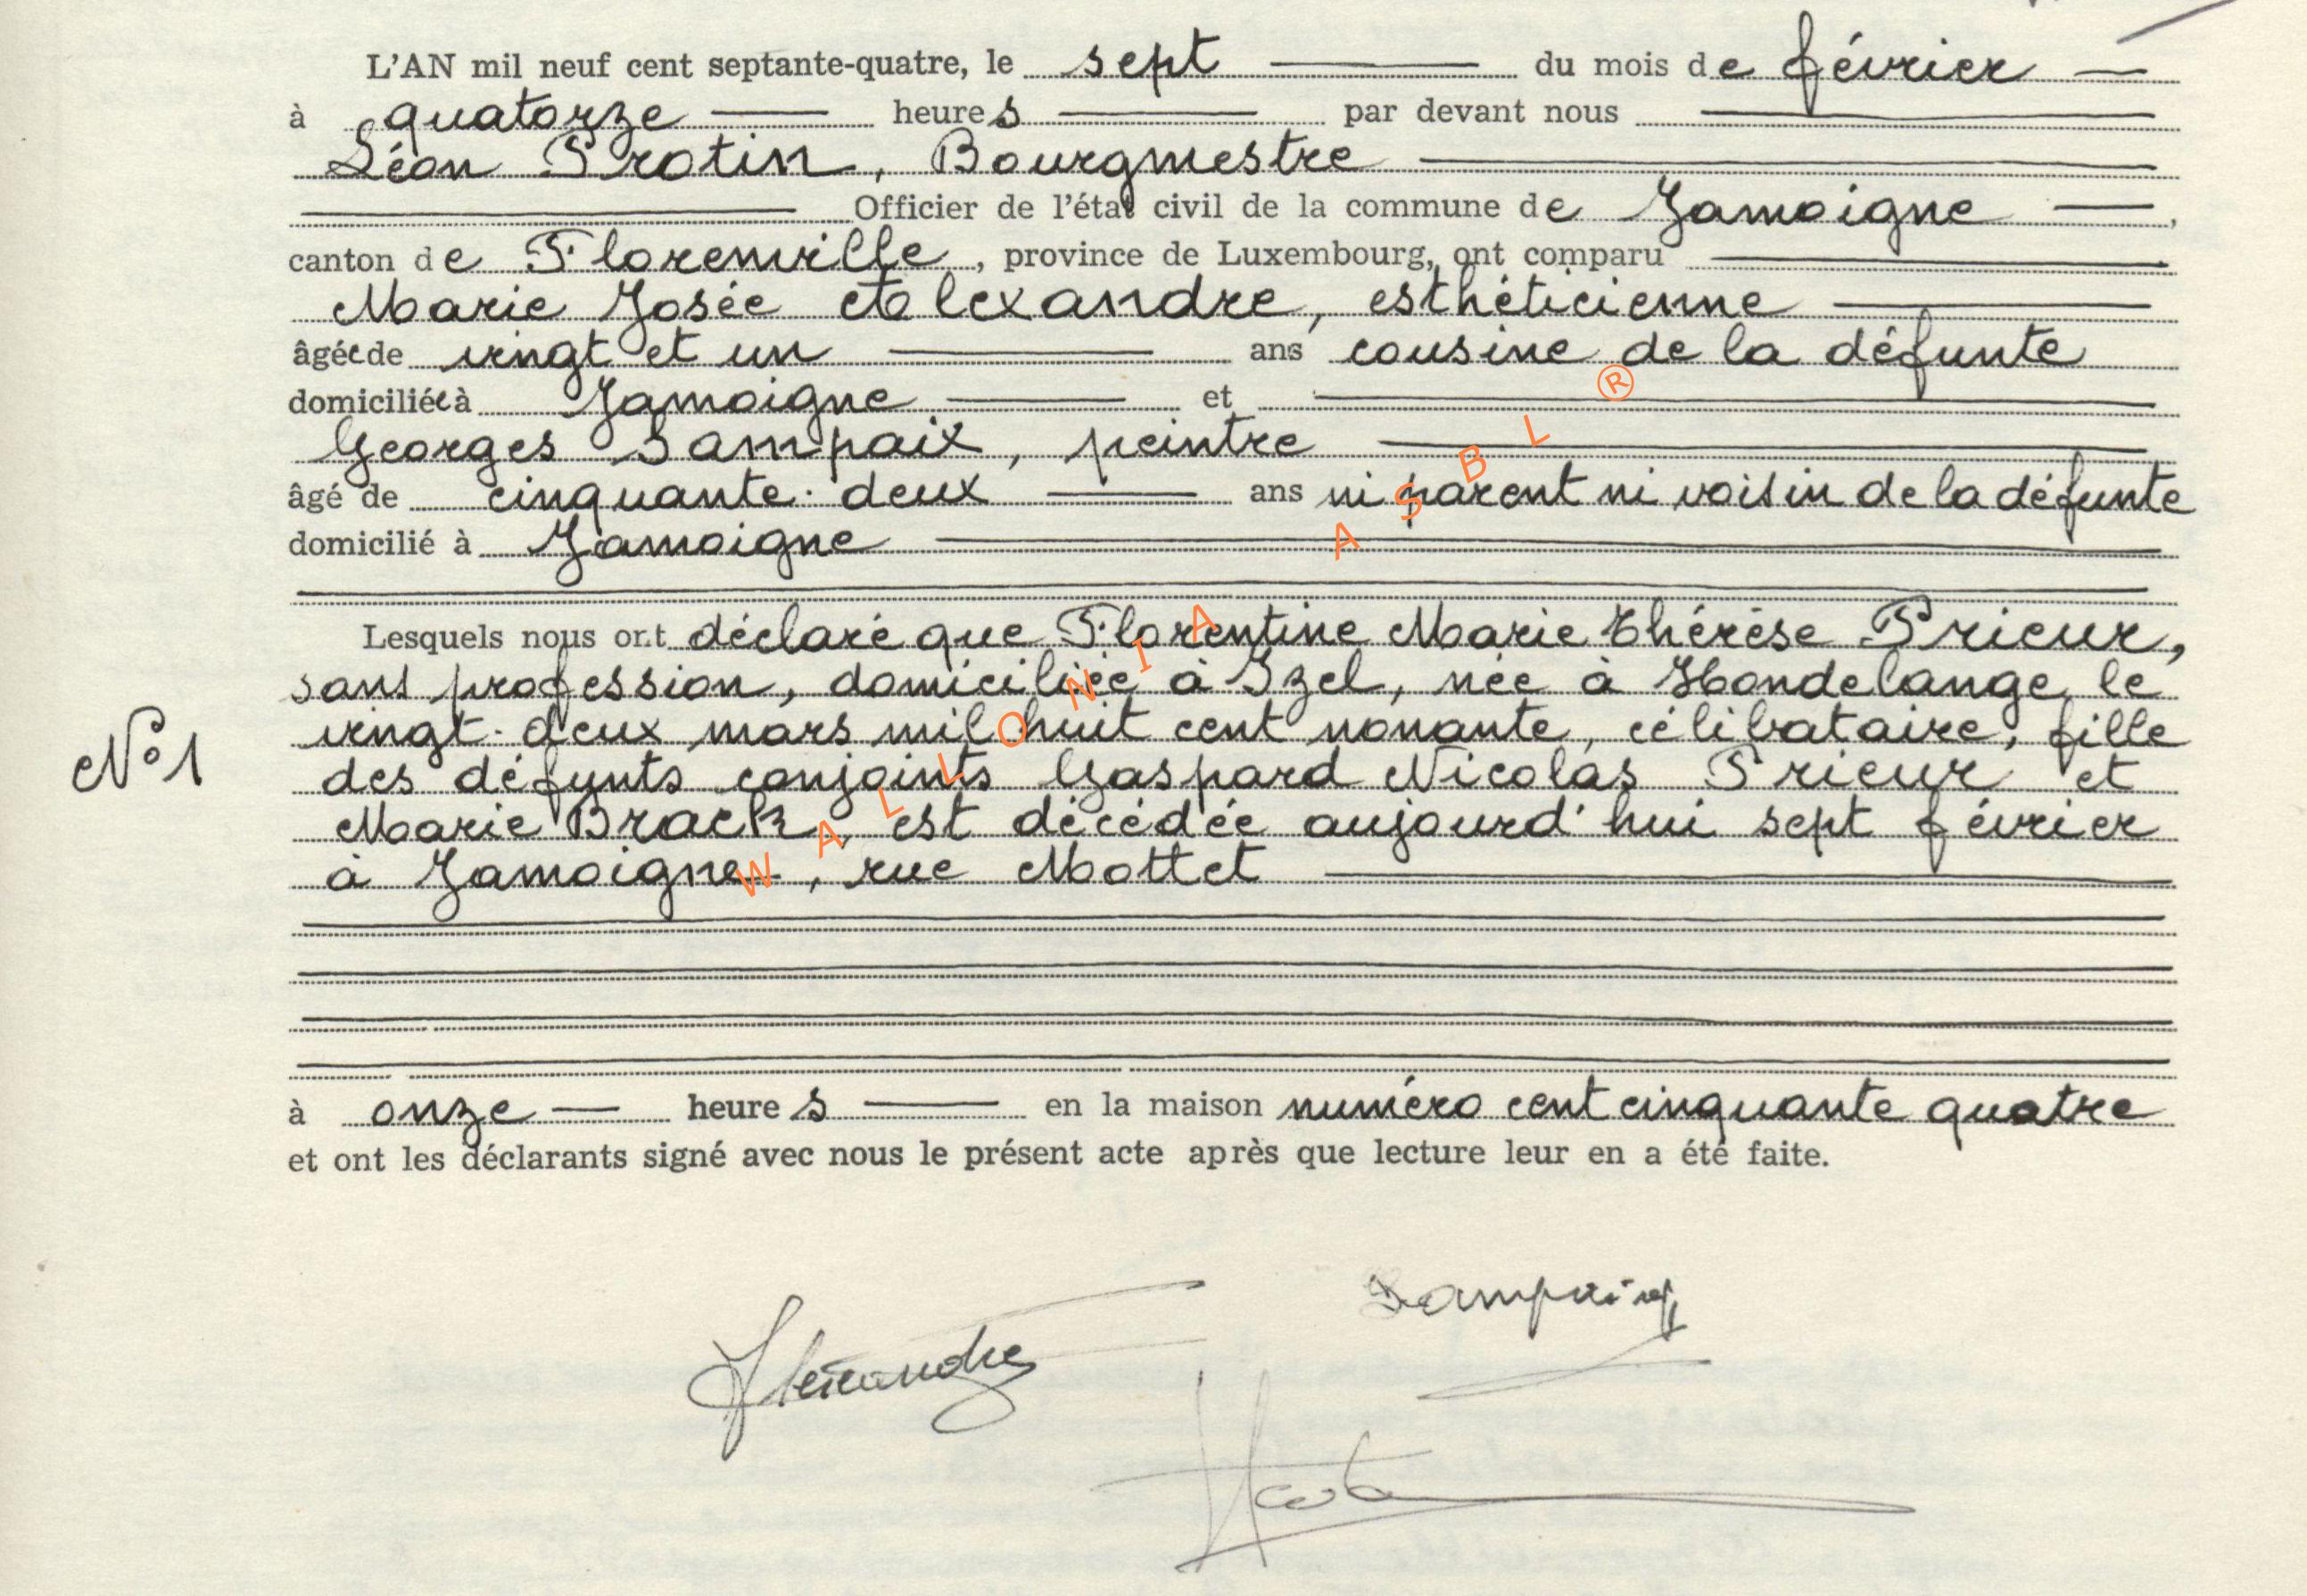 L'AN mil neuf cent septante-quatre, le sept du mois de février
à quatorze heures par devant nous
Léon Protin, Bourgmestre
Officier de l'état civil de la commune de Jamoigne,
canton de Florenville, province de Luxembourg, ont comparu
Marie Josée Alexandre, esthéticienne
âgée de vingt et un ans cousine de la défunte
domiciliée à Jamoigne et
Georges Sampaix, peintre
âgé de cinquante-deux ans ni parent ni voisin de la défunte
domicilié à Jamoigne
Lesquels nous ont déclaré que Florentine Marie Thérèse Prieur,
sans profession, domiciliée à Izel, née à Hondelange, le
vingt-deux mars mil huit cent nonante, célibataire, fille
N°1 des défunts conjoints Gaspard Nicolas Prieur et
Marie Brack, est décédée aujourd'hui sept février
à Jamoigne, rue Mottet
à onze heures en la maison numéro cent cinquante quatre
et ont les déclarants signé avec nous le présent acte après que lecture leur en a été faite.
WALLONIA ASBL ®
Sampaix
Alexandre